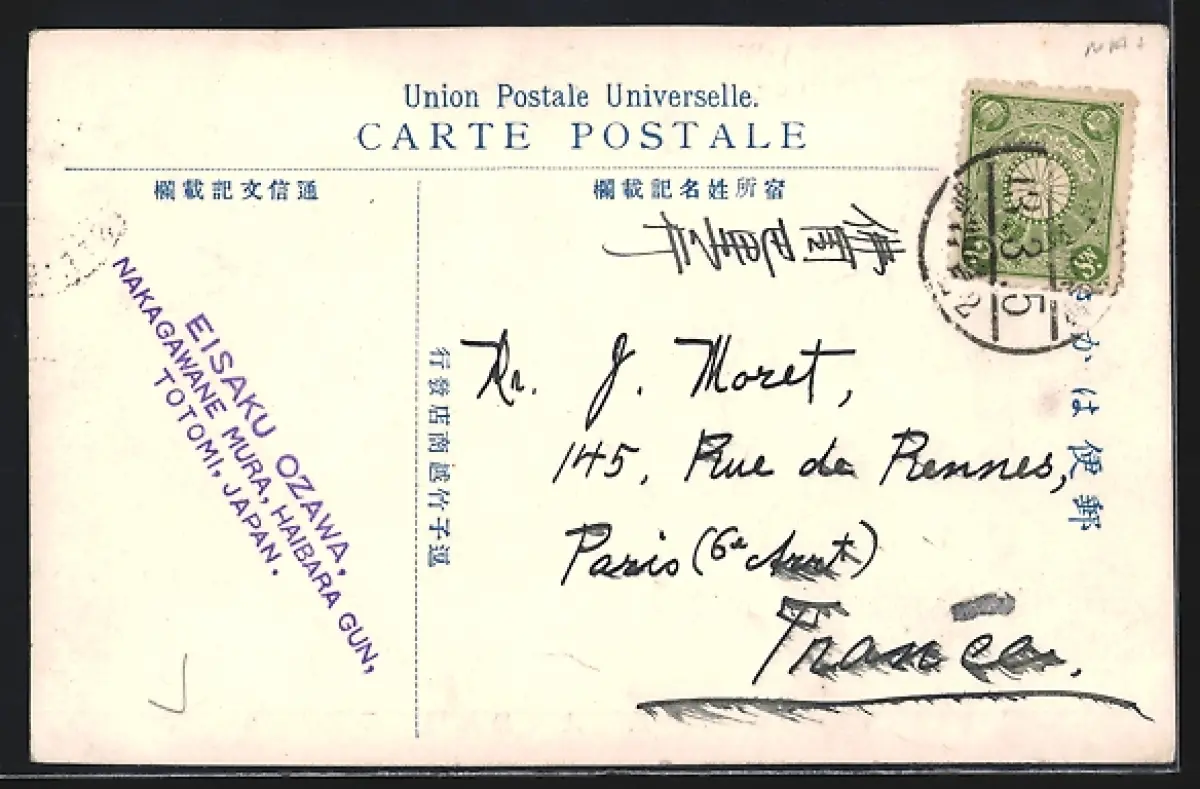 Union Postale Universelle.
CARTE POSTALE
欄載記文信通
欄載記名姓所宿
佛國巴里市
Mr. J. Moret,
145, Rue de Rennes,
Paris (6e Arrt)
France.
EISAKU OZAWA,
NAKAGAWANE MURA, HAIBARA GUN,
TOTOMI, JAPAN.
逗子竹
商店發行
郵便はか
13 3 5